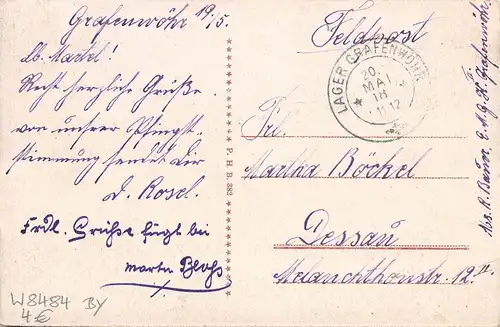 Grafenwöhr 19/5.
Lb. Martel!
Recht herzliche Grüße
von unsrer Pfingst-
stimmung sendet Dir
d. Rosel.
Frdl. Grüße fügt bei
Martin
W8484 BY
4€
P. H. B. 383
Feldpost
LAGER GRAFENWÖHR
20.
MAI
18
11-12
Frl.
Martha Böckel
Dessau
Melanchthonstr. 12 II
Abs. R. Baum, E.A.G.K. Grafenwöhr